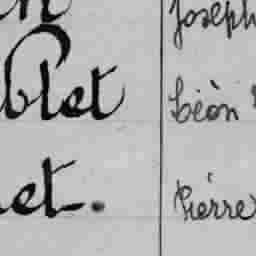 Joseph
blet Léon
et. Pierre